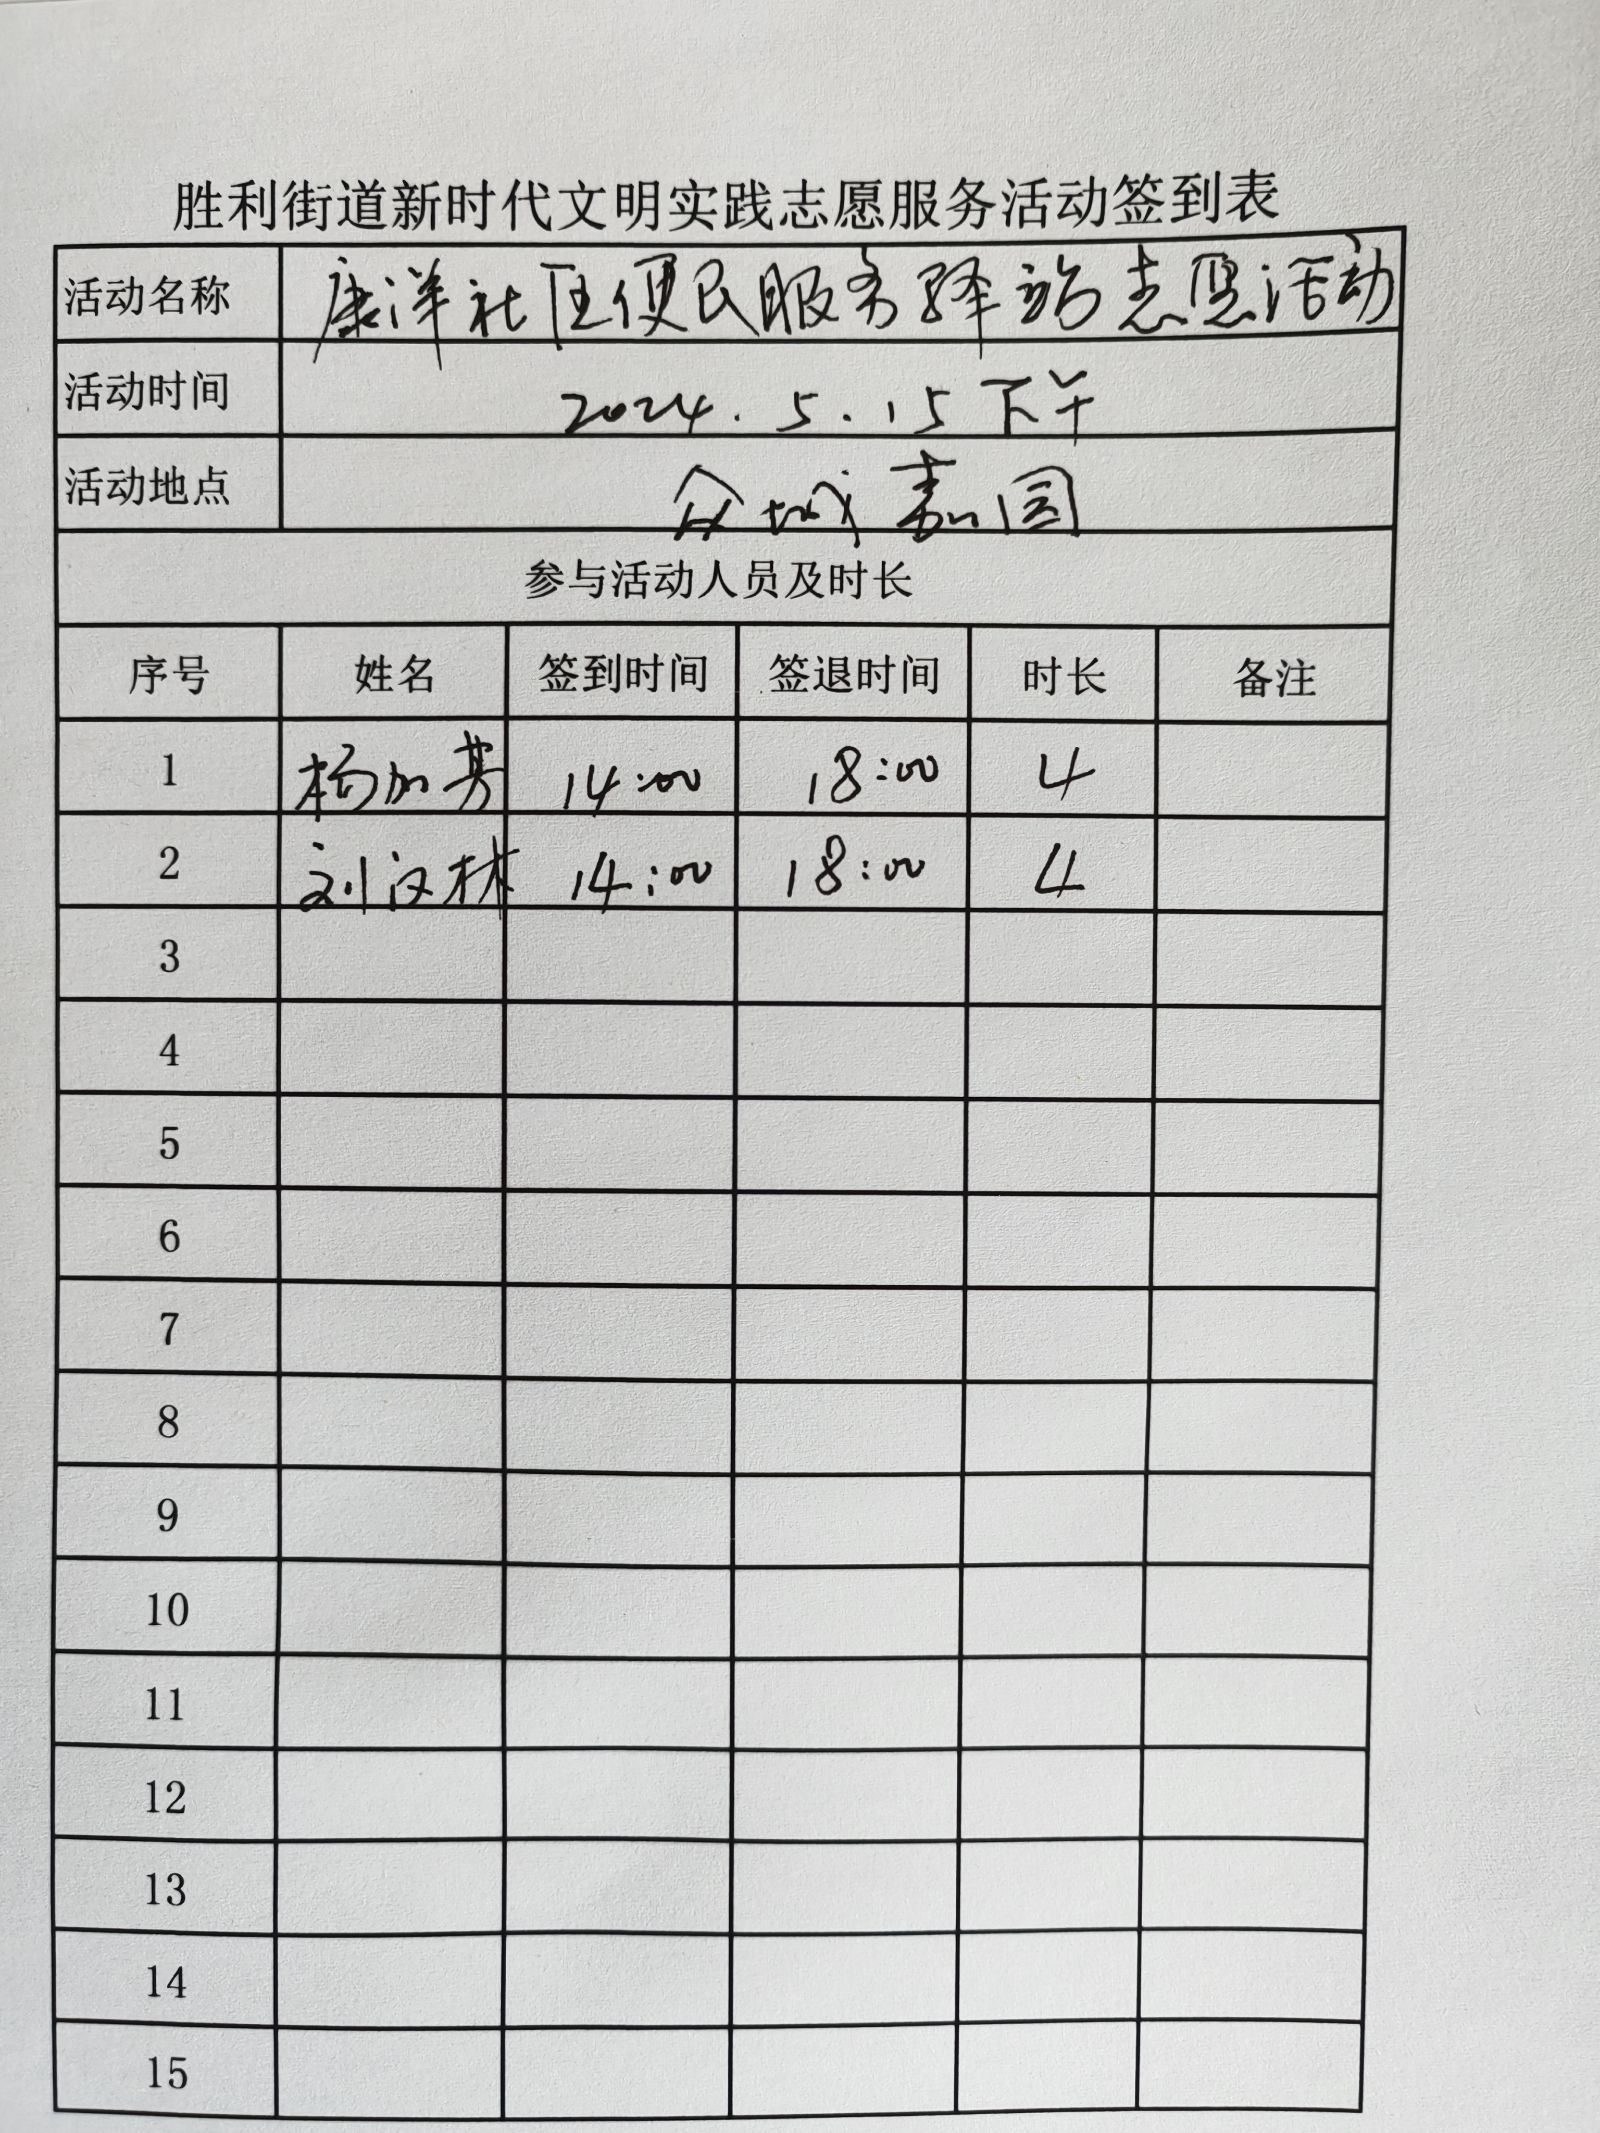 胜利街道新时代文明实践志愿服务活动签到表
活动名称 康洋社区便民服务驿站志愿活动
活动时间 2024.5.15下午
活动地点 众城嘉园
参与活动人员及时长
序号 姓名 签到时间 签退时间 时长 备注
1 杨加芳 14:00 18:00 4
2 刘汉林 14:00 18:00 4
3
4
5
6
7
8
9
10
11
12
13
14
15